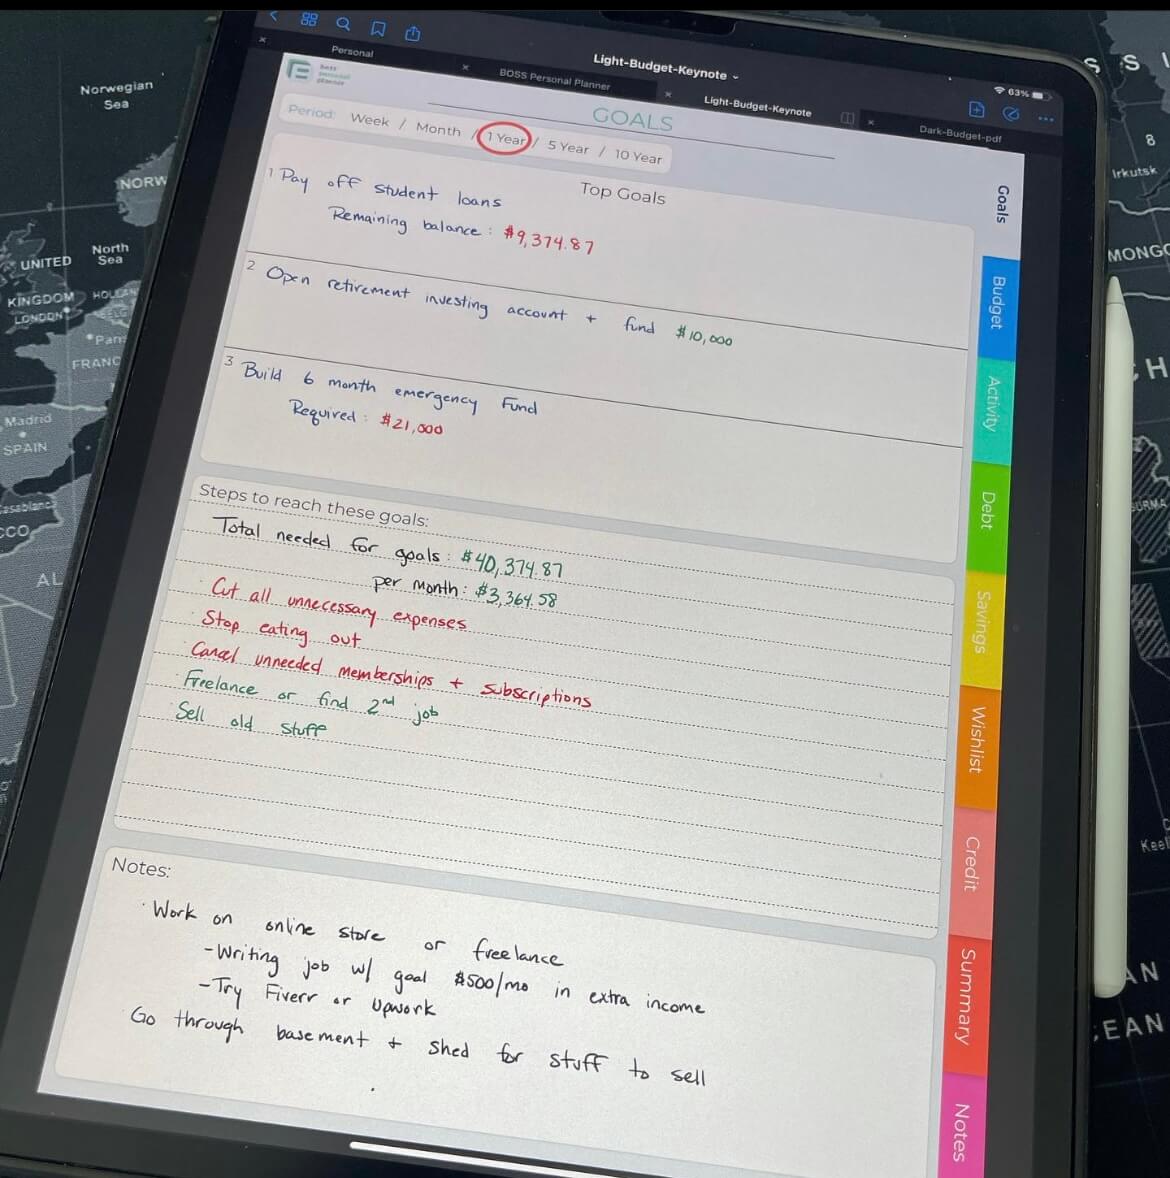 Norwegian
Sea
NORW
North
Sea
UNITED
KINGDOM
LONDON
FRANC
Madrid
SPAIN
CCO
AL
S S I
8
Irkutsk
MONGO
H
URMA
Keel
AN
EAN
63%
Light-Budget-Keynote
Personal
BOSS Personal Planner
Light-Budget-Keynote
Dark-Budget-pdf
boss
personal
planner
GOALS
Period: Week / Month / 1 Year / 5 Year / 10 Year
Top Goals
1 Pay off student loans
Remaining balance: $9,374.87
2 Open retirement investing account + fund $10,000
3 Build 6 month emergency Fund
Required: $21,000
Steps to reach these goals:
Total needed for goals: $40,374.87
per month: $3,364.58
· Cut all unnecessary expenses
· Stop eating out
· Cancel unneeded memberships + subscriptions
· Freelance or find 2nd job
· Sell old stuff
Notes:
· Work on online store or freelance
-Writing job w/ goal $500/mo in extra income
-Try Fiverr or Upwork
· Go through basement + shed for stuff to sell
Goals
Budget
Activity
Debt
Savings
Wishlist
Credit
Summary
Notes